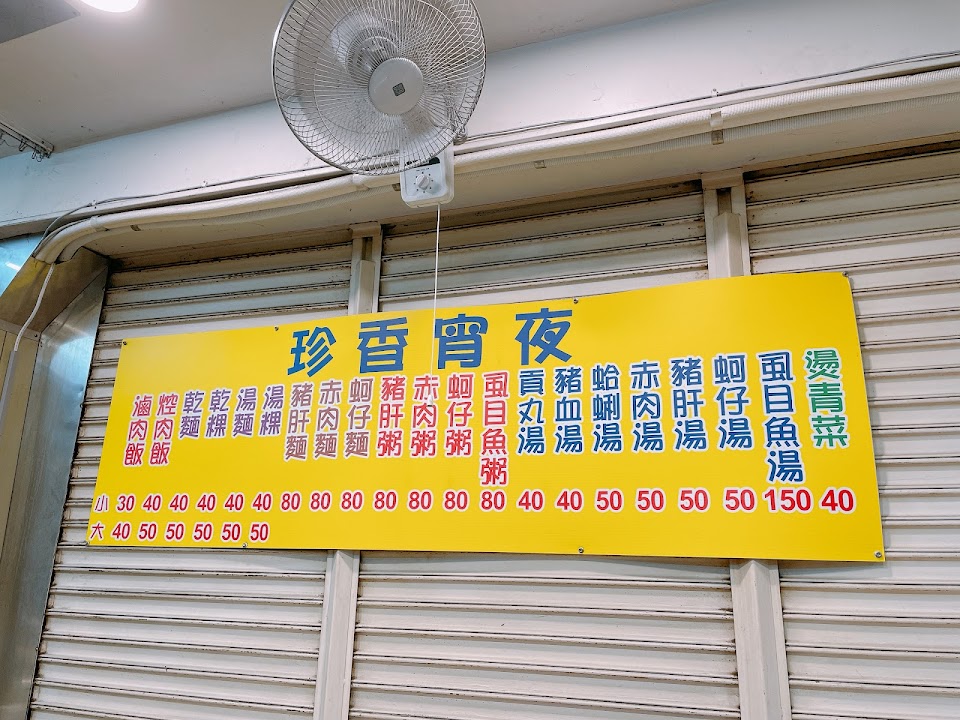 珍香宵夜
滷肉飯
焢肉飯
乾麵
乾粿
湯麵
湯粿
豬肝麵
赤肉麵
蚵仔麵
豬肝粥
赤肉粥
蚵仔粥
虱目魚粥
貢丸湯
豬血湯
蛤蜊湯
赤肉湯
豬肝湯
蚵仔湯
虱目魚湯
燙青菜
小 30 40 40 40 40 40 80 80 80 80 80 80 80 40 40 50 50 50 50 150 40
大 40 50 50 50 50 50